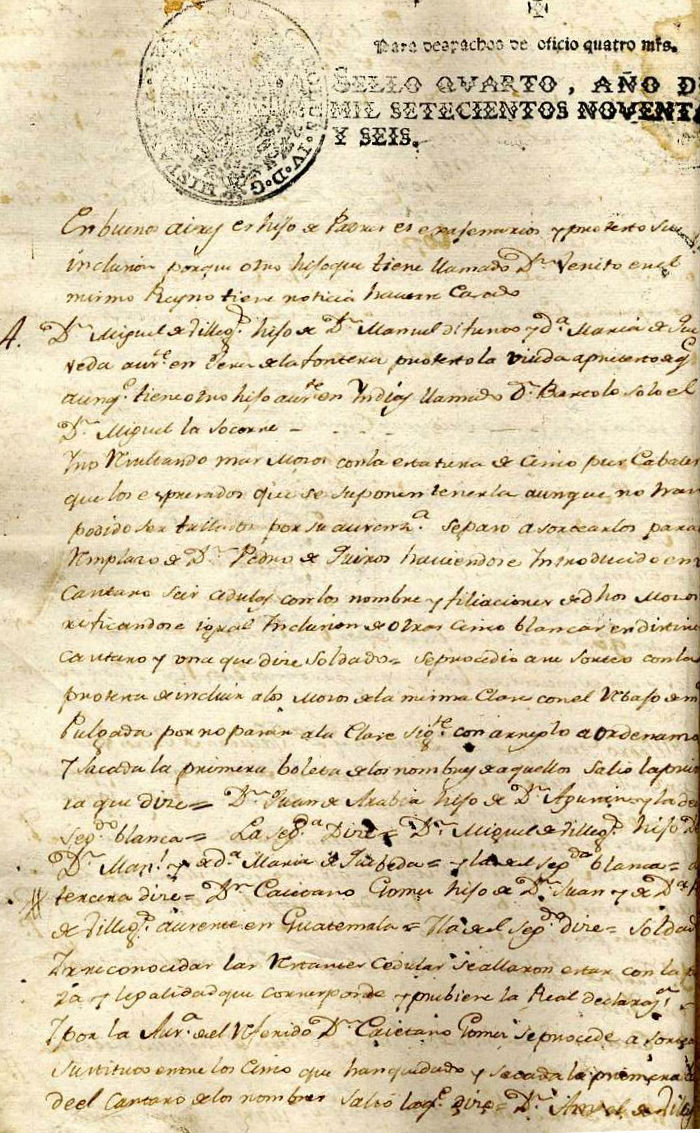 Para despachos de oficio quatro mrs.
SELLO QVARTO, AÑO D
MIL SETECIENTOS NOVENTA
Y SEIS.
HISPANIAR
IV D G
En buenos aires es hijo de Padres y protesto su
inclusion porque otro hijo que tiene llamado Dn. Venito en el
mismo Reyno tiene noticia haverse Casado
4. Dn. Miguel de Villegs. hijo de Dn. Manuel difunto y Da. Maria de
veda aute. en de la frontera protesto la viuda a pretexto de q
aunqe. tiene otro hijo aute. en Yndias llamado Dn. Bartolo solo el
Dn. Miguel la socorre
Yno Resultando mas Mosos con la estatura de Cinco pies Cabales
que los espresados que se suponen tenerla aunque no han
podido ser tallados por su ausenza. se paso a sortearlos para
Remplazo de Dn. Pedro de Quiros haviendose Introducido en
Cantaro seis cedulas con los nombres y filiaciones de dhos Mosos
igual Inclusion de otras Cinco blancas en distinto
Cantaro y una que dize Soldado = se procedio a su sorteo con la
protesta de incluir a los Mosos de la misma Clase con el Rebajo de
Pulgada por no pasar a la Clase sigte. con arreglo a ordenanza
Y sacada la primera boleta de los nombres de aquellos salio la
que dize = Dn. Juan de Arabia hijo de Dn. Agustin y la del
segdo. blanca = La sega. Dize = Dn. Miguel de Villegs. hijo de
Dn. Manl. y de da. Maria de = y la del segdo. blanca =
tercera dize = Dn. Caietano Gomez hijo de Dn. Juan y de Da.
de Villegs. ausente en Guatemala = Yla del segdo. dize = Soldado
Y reconocidas las Restantes Cedulas se allaron estar con la
y legalidad que corresponde y pubiere la Real declarazn.
Y por la Ausa. del Referido Dn. Caietano Gomez se procede a sortear
sustituto entre los Cinco que han quedado y sacada la primera
de el Cantaro de los nombres Salio la qe. dize = Dn. de Villegs